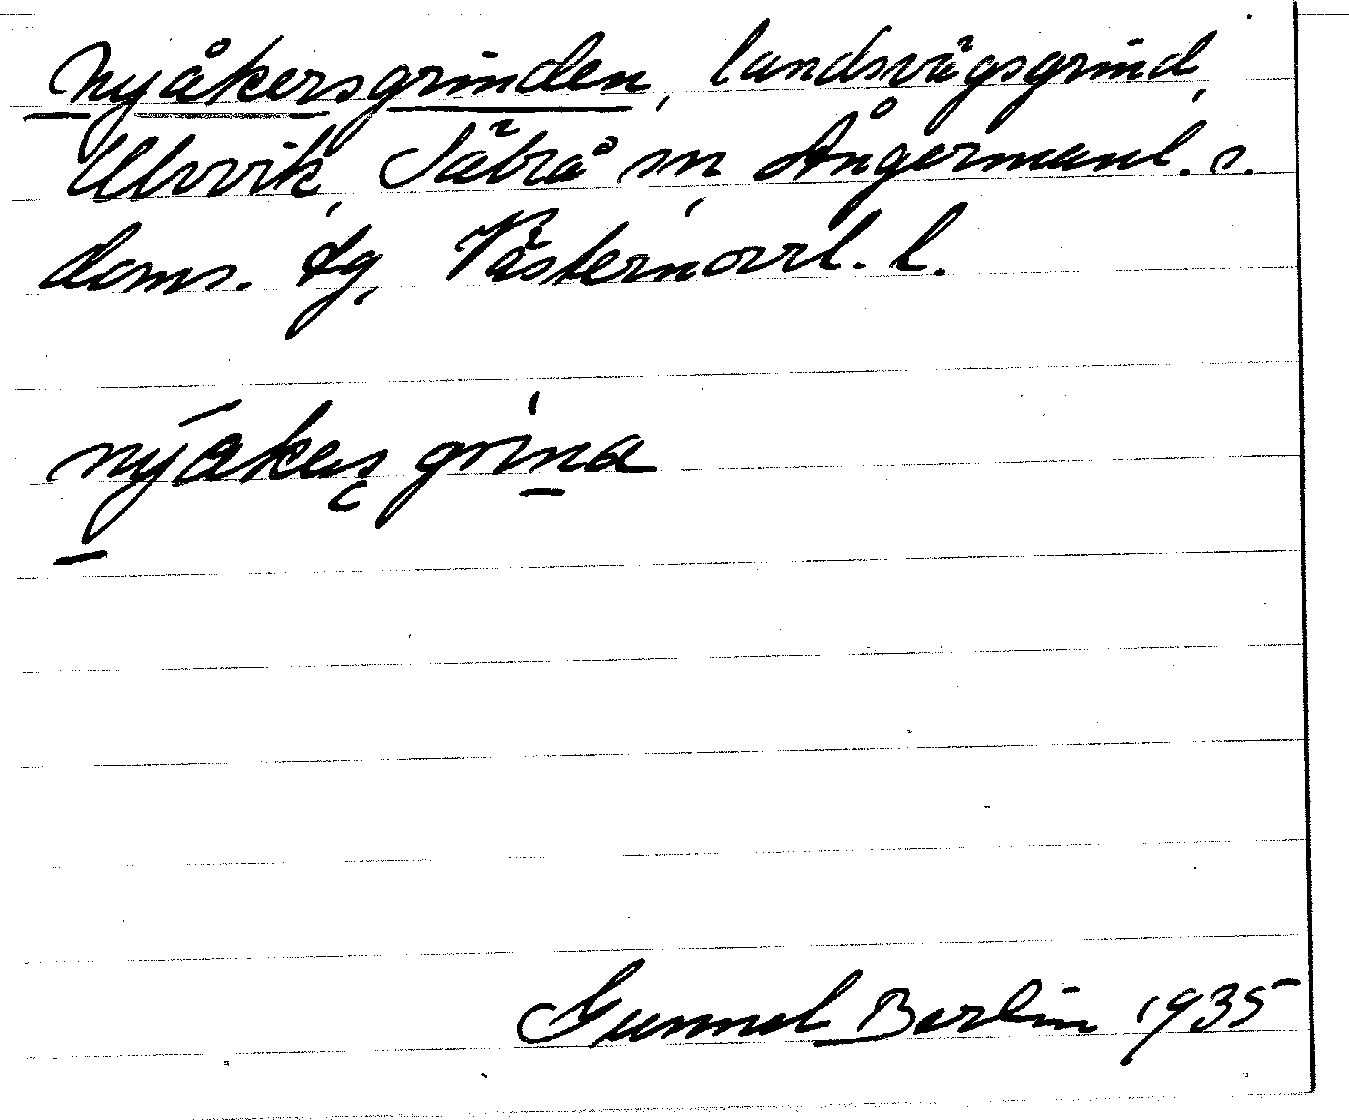 Nyåkersgrinden, landsvägsgrind,
Ulvvik, Säbrå sn, Ångermanl. s.
doms. tg, Västernorrl. l.
nýakesgrina
Gunnel Berlin 1935